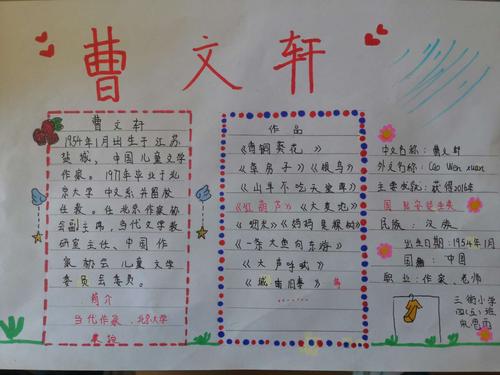 曹文轩
曹文轩
1954年1月出生于江苏
盐城，中国儿童文学
作家。1977年毕业于北
京大学中文系并留校
任教。任北京作家协
会副主席，当代文学教
研室主任、中国作
家协会儿童文学
委员会委员。
简介
当代作家、北京大学
教授
作品
《青铜葵花》
《草房子》《根鸟》
《山羊不吃天堂草》
《红葫芦》《大麦地》
《细米》《妈妈是棵树》
《一条大鱼向东游》
《大声呼喊》
《城南旧事》
……
中文名称：曹文轩
外文名称：Cao Wen xuan
主要成就：获得2016年
国际安徒生奖
民族：汉族
出生日期：1954年1月
国籍：中国
职业：作家、老师
三街小学
四（五）班